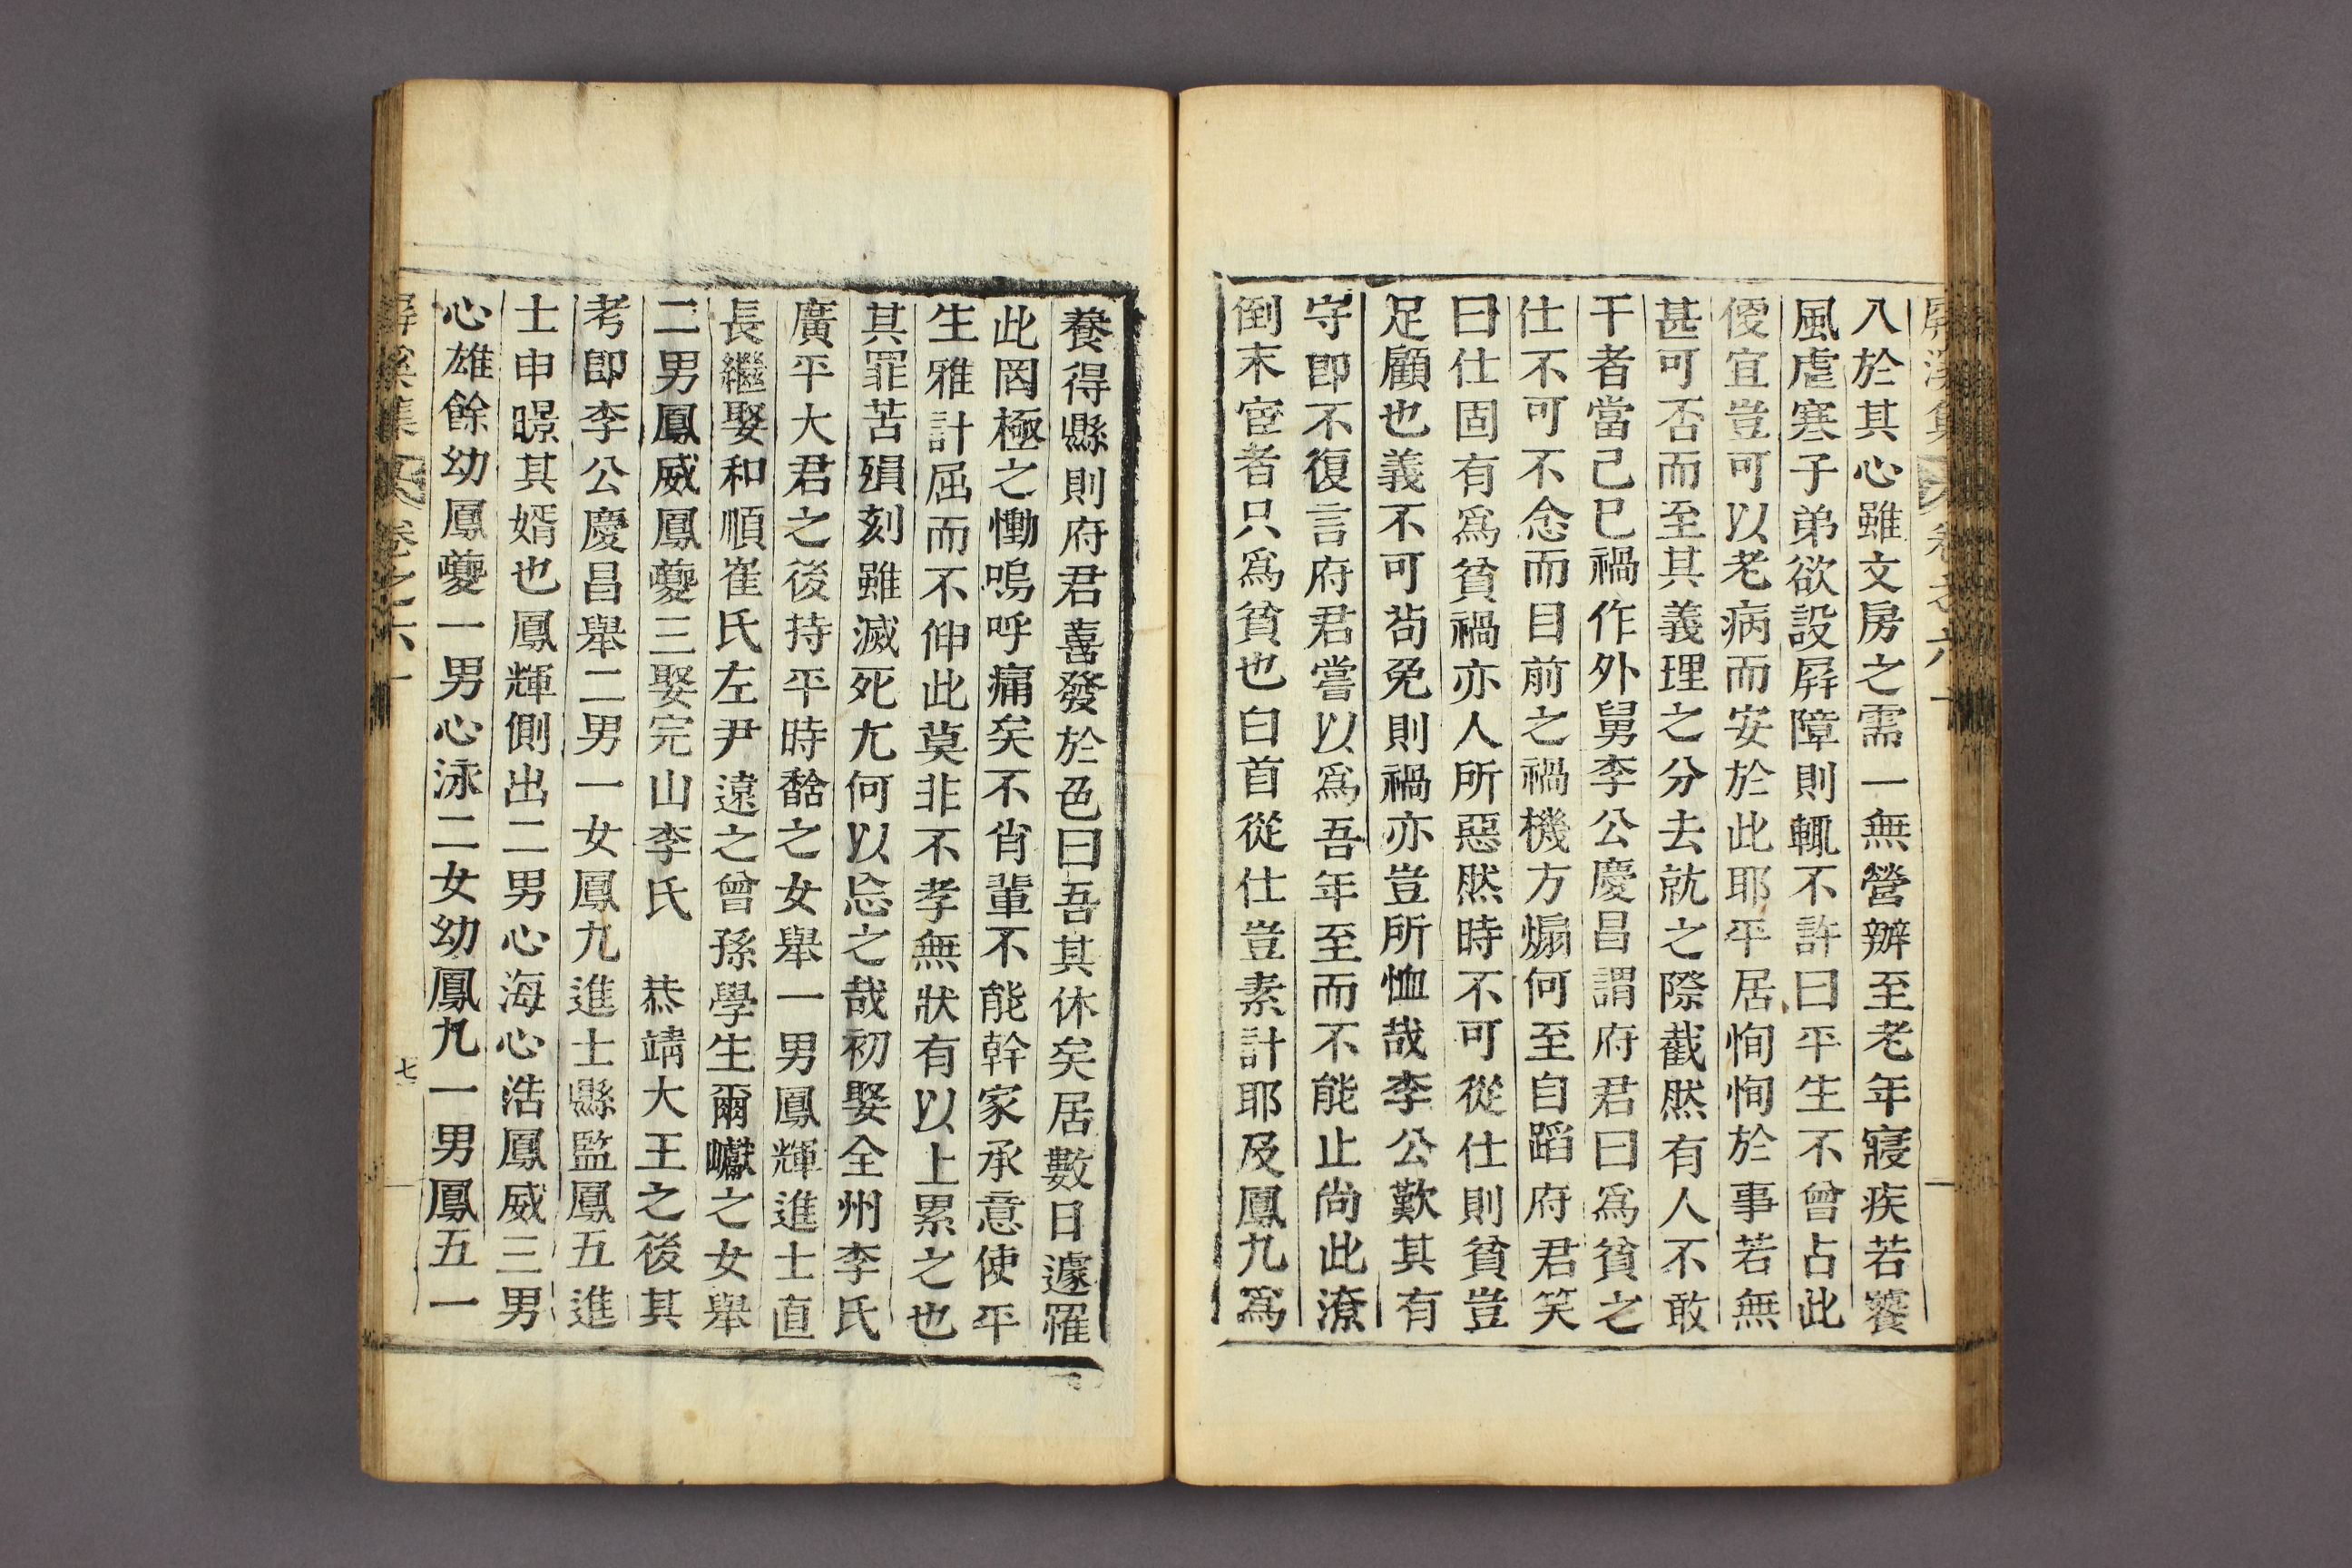 屛溪集 卷之六十
入於其心雖文房之需一無營辦至老年寢疾若饕
風虐寒子弟欲設屛障則輒不許曰平生不曾占此
便宜豈可以老病而安於此耶平居恂恂於事若無
甚可否而至其義理之分去就之際截然有人不敢
干者當己巳禍作外舅李公慶昌謂府君曰爲貧之
仕不可不念而目前之禍機方煽何至自蹈府君笑
曰仕固有爲貧禍亦人所惡然時不可從仕則貧豈
足顧也義不可苟免則禍亦豈所恤哉李公歎其有
守卽不復言府君嘗以爲吾年至而不能止尚此潦
倒末宦者只爲貧也白首從仕豈素計耶及鳳九爲
養得縣則府君喜發於色曰吾其休矣居數日遽罹
此罔極之慟嗚呼痛矣不肖輩不能幹家承意使平
生雅計屈而不伸此莫非不孝無狀有以上累之也
其罪苦殞刻雖滅死尤何以忘之哉初娶全州李氏
廣平大君之後持平時馠之女舉一男鳳輝進士直
長繼娶和順崔氏左尹遠之曾孫學生爾巘之女舉
二男鳳威鳳夔三娶完山李氏 恭靖大王之後其
考卽李公慶昌舉二男一女鳳九進士縣監鳳五進
士申暻其婿也鳳輝側出二男心海心浩鳳威三男
心雄餘幼鳳夔一男心泳二女幼鳳九一男鳳五一
屛溪集 卷之六十 七